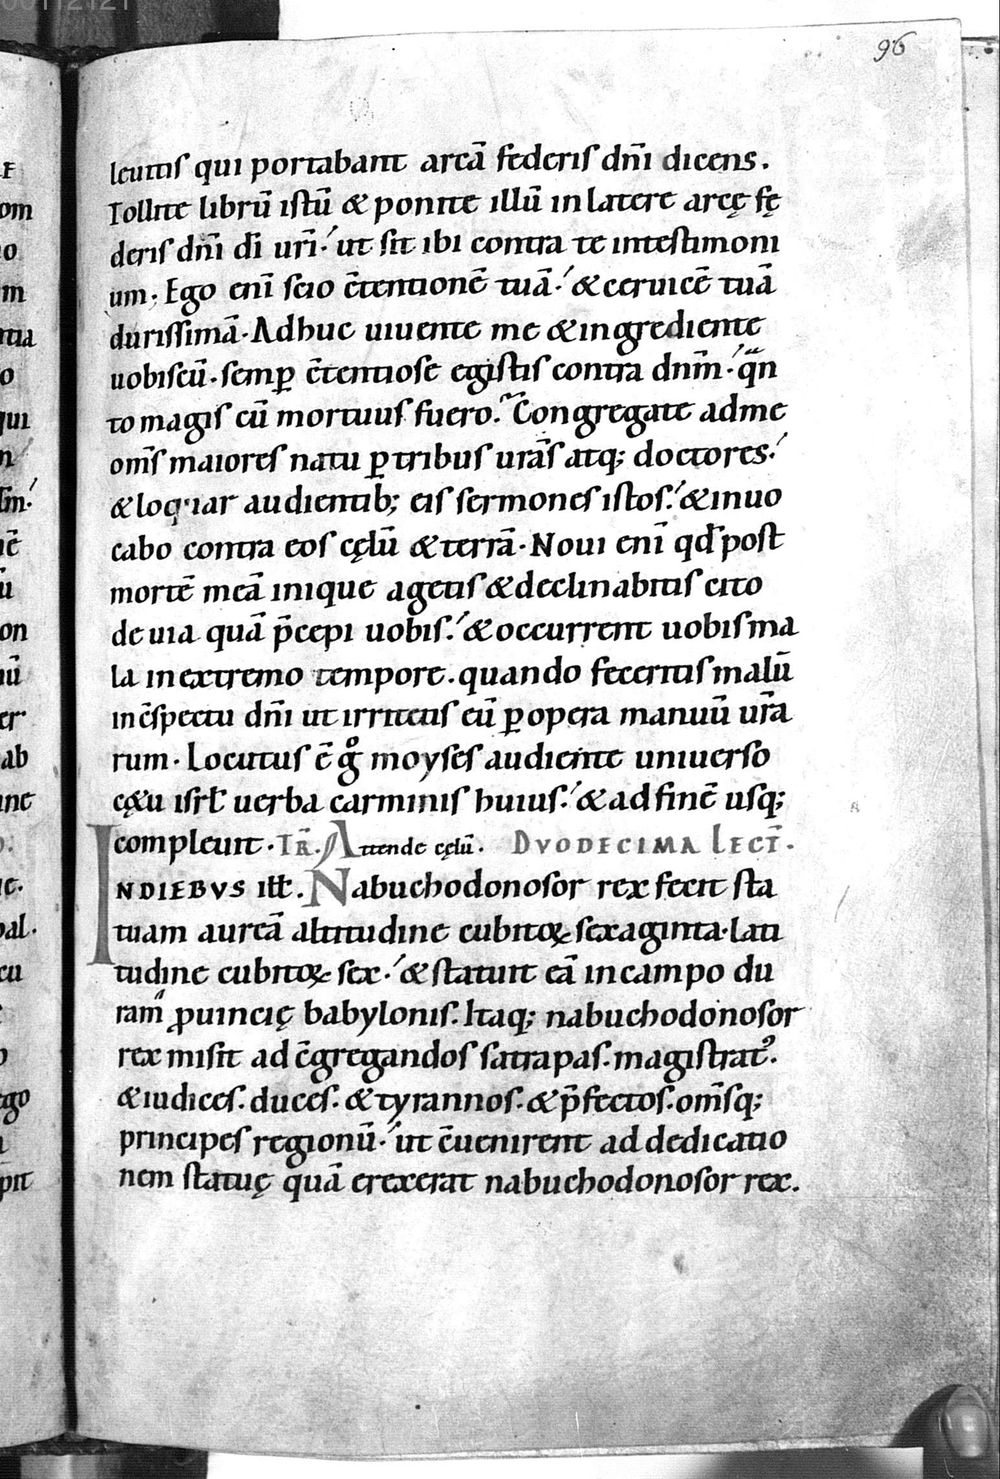 00112121
96
leuitis qui portabant arcā federis dn̄i dicens.
Tollite librū istū & ponite illū in latere arcę fę
deris dn̄i dī ur̄i· ut sit ibi contra te intestimoni
um. Ego enī scio c̄tentionē tuā· & ceruicē tuā
durissimā. Adhuc uiuente me & ingrediente
uobiscū· semꝑ c̄tentiose egistis contra dn̄m· qn̄
to magis cū mortuus fuero. Congregate ad me
om̄s maiores natu ꝑ tribus urās atq; doctores·
& loquar audientib; eis sermones istos· & inuo
cabo contra eos cęlū & terrā. Noui enī qđ post
mortē meā inique agetis & declinabitis cito
de uia quā p̄cepi uobis· & occurrent uobis ma
la in extremo tempore. quando feceritis malū
in c̄spectu dn̄i ut irritetis eū ꝑ opera manuū ur̄a
rum. Locutus ē gͦ moyses audiente uniuerso
cętu isrł uerba carminis huius· & ad finē usq;
compleuit. TR̄. Attende cęlū. DVODECIMA LECT̄.
INDIEBVS ill̄. Nabuchodonosor rex fecit sta
tuam aureā altitudine cubitoꝝ sexaginta· lati
tudine cubitoꝝ sex· & statuit eā in campo du
ram ꝓuincię babylonis. Itaq; nabuchodonosor
rex misit ad c̄gregandos satrapas. magistratꝰ.
& iudices. duces. & tyrannos. & p̄fectos. om̄sq;
principes regionū· ut c̄uenirent ad dedicatio
nem statuę quā erexerat nabuchodonosor rex.